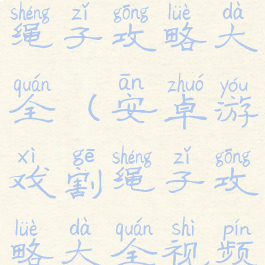 shéng zǐ gōng lüè dà
绳子攻略大
quán ān zhuó yóu
全(安卓游
xì gē shéng zǐ gōng
戏割绳子攻
lüè dà quán shì pín
略大全视频